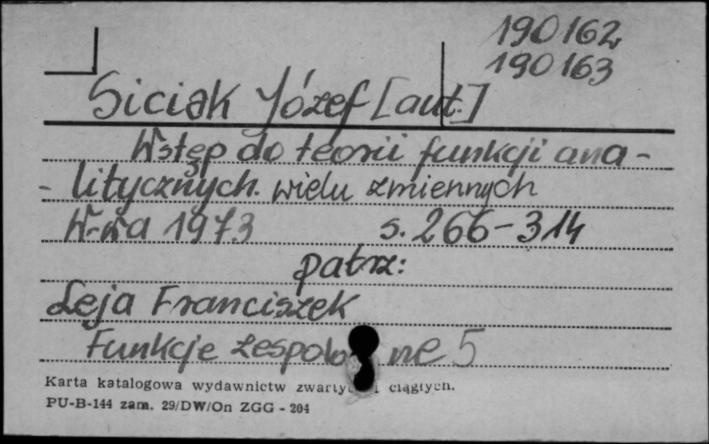 190162
190163
Siciak Józef [aut.]
Wstęp do teorii funkcji ana-
- litycznych wielu zmiennych
W-wa 1973 s. 266-314
patrz:
Leja Franciszek
Funkcje zespolone 5
Karta katalogowa wydawnictw zwartych i ciągłych.
PU-B-144 zam. 29/DW/On ZGG - 204